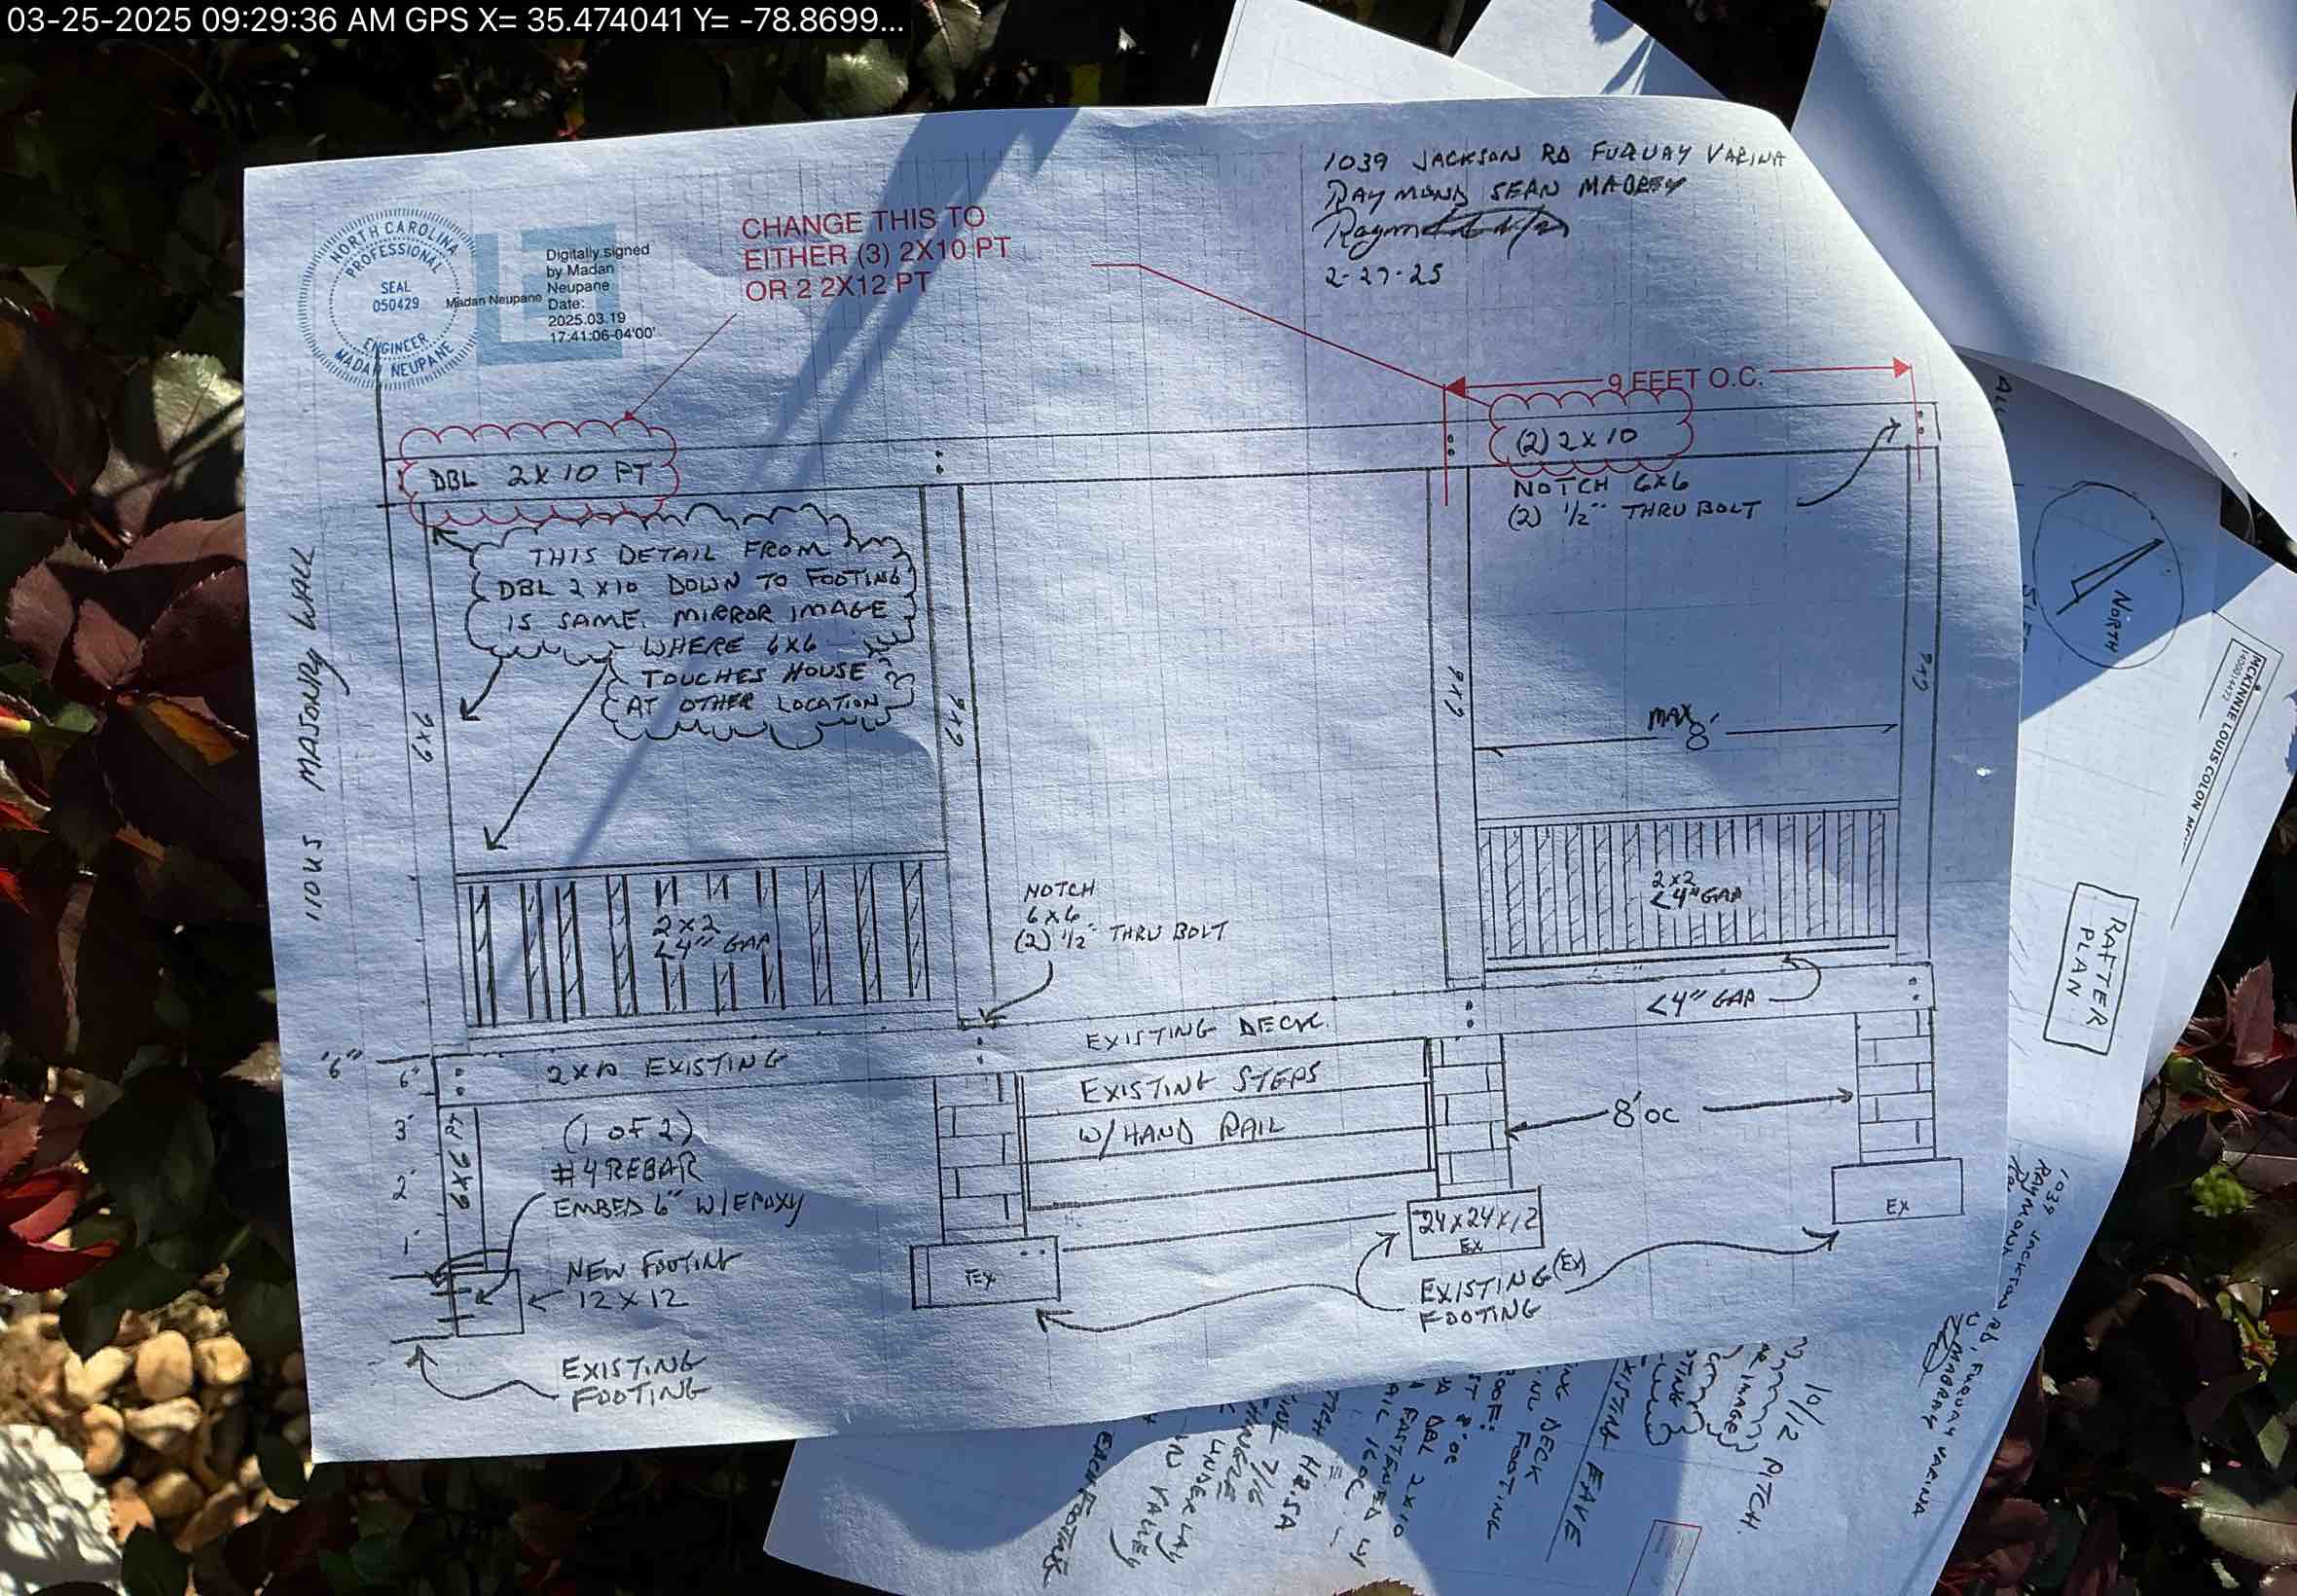 03-25-2025 09:29:36 AM GPS X= 35.474041 Y= -78.8699...
1039 JACKSON RD FUQUAY VARINA
RAYMOND SEAN MABREY
2-27-25
NORTH CAROLINA
PROFESSIONAL
SEAL
050429
ENGINEER
MADAN NEUPANE
Madan Neupane
Digitally signed
by Madan
Neupane
Date:
2025.03.19
17:41:06-04'00'
CHANGE THIS TO
EITHER (3) 2X10 PT
OR 2 2X12 PT
9 FEET O.C.
DBL 2X10 PT
(2) 2X10
NOTCH 6X6
(2) 1/2" THRU BOLT
THIS DETAIL FROM
DBL 2X10 DOWN TO FOOTING
IS SAME, MIRROR IMAGE
WHERE 6X6
TOUCHES HOUSE
AT OTHER LOCATION
MASONRY WALL
6X6
6X6
6X6
6X6
MAX
8'
2X2
<4" GAP
2X2
<4" GAP
NOTCH
6X6
(2) 1/2" THRU BOLT
<4" GAP
EXISTING DECK
2X10 EXISTING
EXISTING STEPS
W/HAND RAIL
8' OC
"6"
6"
3'
2'
1'
6X6
(1 OF 2)
#4 REBAR
EMBED 6" W/EPOXY
NEW FOOTING
12X12
EX
24X24X12
EX
EX
EXISTING (EX)
FOOTING
EXISTING
FOOTING
NORTH
MCKINNIE LOUIS COLON
RAFTER
PLAN
1039 JACKSON RD, FUQUAY VARINA
MABREY
10/12 PITCH
EXISTING EAVE
DECK
FOOTING
ROOF:
DBL 2X10
FASTENED
16OC
H2.5A
7/16
SHINGLE
UNDERLAY
VALLEY
EACH FOOTING